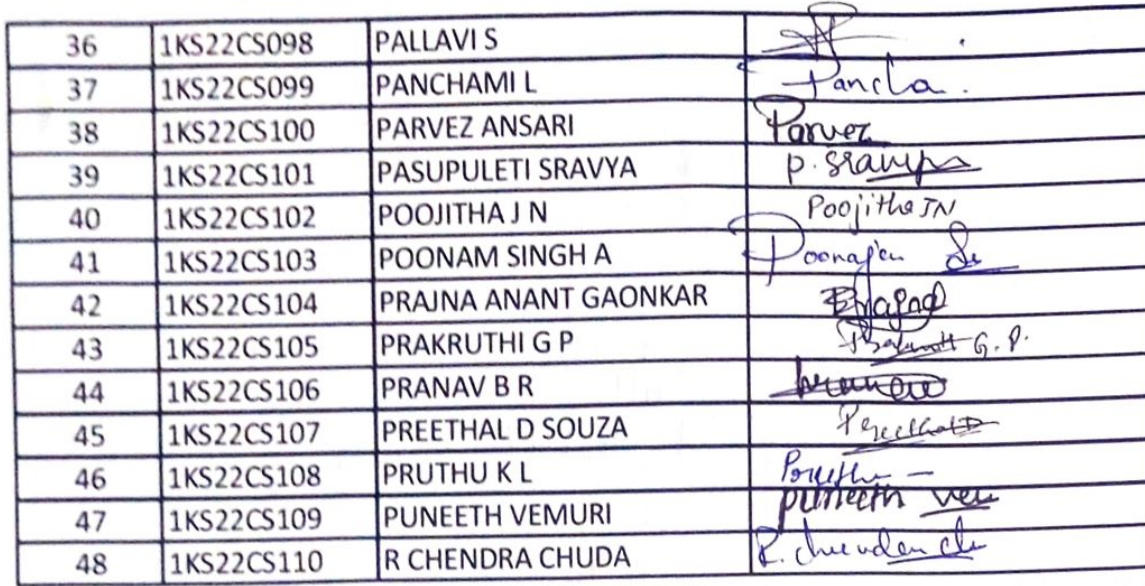 36 1KS22CS098 PALLAVI S
37 1KS22CS099 PANCHAMI L Pancha.
38 1KS22CS100 PARVEZ ANSARI Parvez
39 1KS22CS101 PASUPULETI SRAVYA P. Sravya
40 1KS22CS102 POOJITHA J N Poojitha JN
41 1KS22CS103 POONAM SINGH A
42 1KS22CS104 PRAJNA ANANT GAONKAR
43 1KS22CS105 PRAKRUTHI G P G.P.
44 1KS22CS106 PRANAV B R
45 1KS22CS107 PREETHAL D SOUZA
46 1KS22CS108 PRUTHU K L
47 1KS22CS109 PUNEETH VEMURI puneeth vem
48 1KS22CS110 R CHENDRA CHUDA